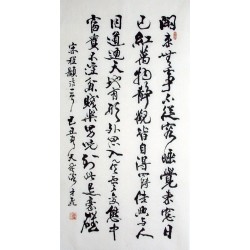 閑来無事不從容睡覺东窗日
已紅萬物静觀皆自得四時佳興与人
同道通天地有形外思入风雲变態中
富貴不淫贫賤樂男児到此是豪雄
宋程顥诗一首 己丑年